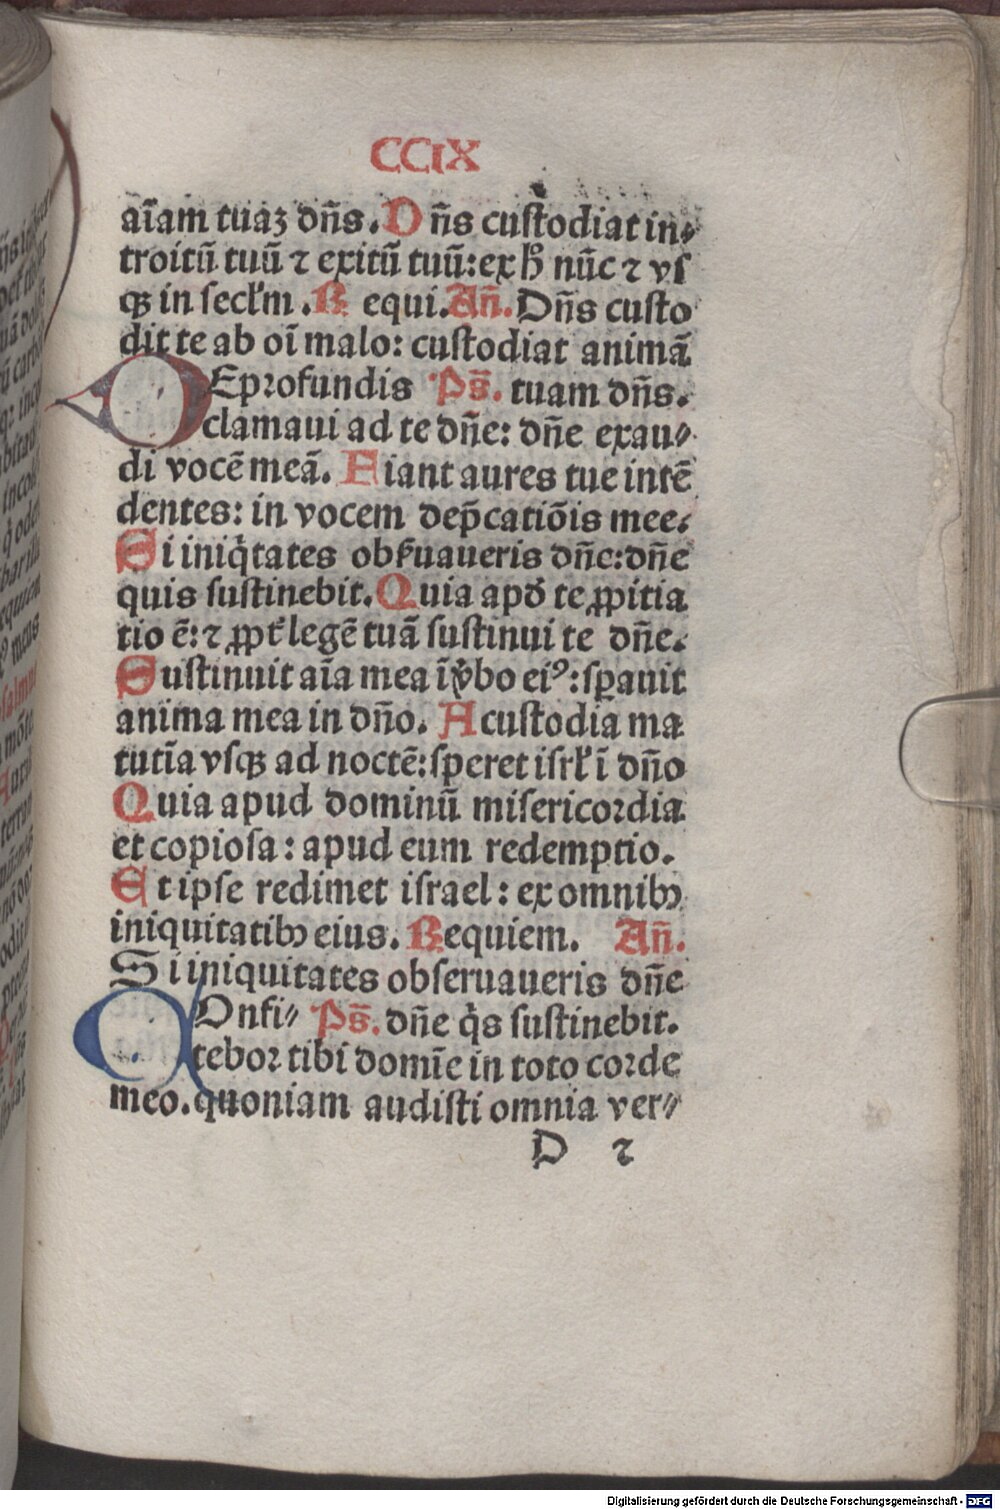 CCIX
aīam tuaꝫ dn̄s. D n̄s custodiat in⸗
troitū tuū ⁊ exitū tuū: ex hͦ nūc ⁊ vſ
qꝫ in secl̄m. R equi. An̄. Dn̄s custo
dit te ab oī malo: custodiat animā
DEprofundis Ps̄. tuam dn̄s.
clamaui ad te dn̄e: dn̄e exau⸗
di vocē meā. Fiant aures tue intē
dentes: in vocem dep̄catiōis mee.
Si iniq̇tates obẜuaueris dn̄e: dn̄e
quis ſuſtinebit. Quia apd̄ te ꝓpitia
tio ē: ⁊ ꝓpt̄ legē tuā ſuſtinui te dn̄e.
Suſtinuit aīa mea ī v̄bo eiꝰ: ſꝑauit
anima mea in dn̄o. A cuſtodia ma
tutīa vſqꝫ ad noctē: ſperet iſrl̄ ī dn̄o
Quia apud dominū miſericordia
et copioſa: apud eum redemptio.
Et ipſe redimet iſrael: ex omnibꝫ
iniquitatibꝫ eius. Requiem. An̄.
Si iniquitates obſeruaueris dn̄e
COnfi⸗ Ps̄. dn̄e q̇s ſuſtinebit.
tebor tibi domīe in toto corde
meo. quoniam audiſti omnia ver⸗
D 2
Digitalisierung gefördert durch die Deutsche Forschungsgemeinschaft - DFG